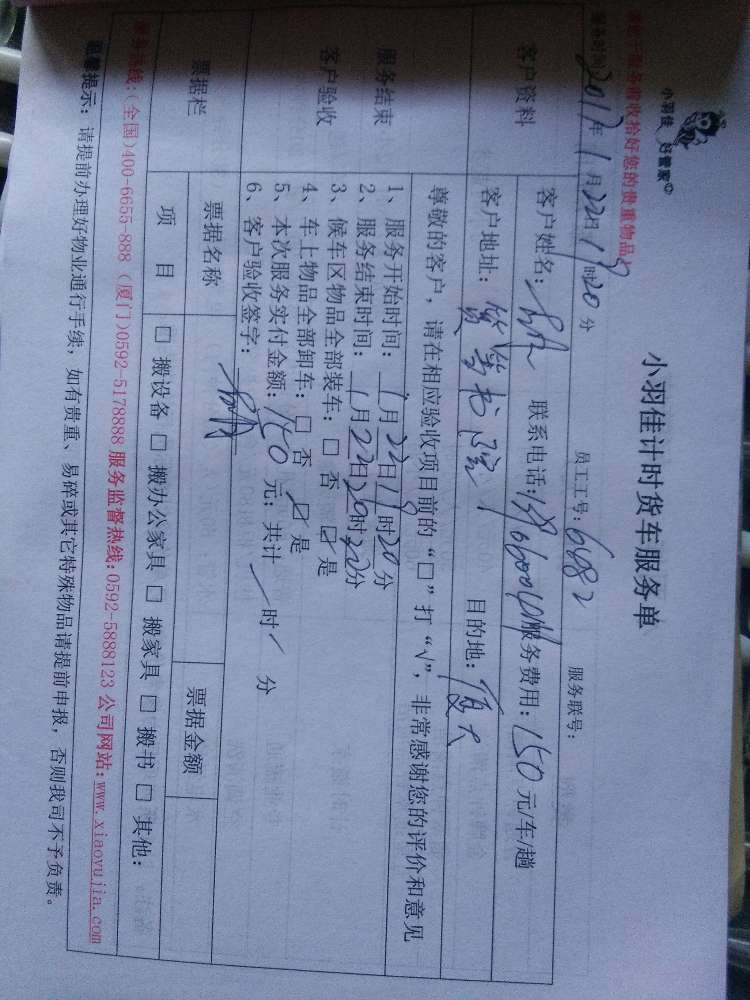 小羽佳 好管家
小羽佳计时货车服务单
服务前收拾好您的贵重物品
服务时间 2017年1月22日19时20分 员工工号: 6682 服务联号:
客户资料
客户姓名: 联系电话: 服务费用: 150元/车/趟
客户地址: 篔筜书院 目的地: 厦大
尊敬的客户，请在相应验收项目前的“□”打“√”，非常感谢您的评价和意见
服务结束
客户验收
1、服务开始时间: 1月22日19时20分
2、服务结束时间: 1月22日20时20分
3、候车区物品全部装车: □ 否 ☑ 是
4、车上物品全部卸车: □ 否 ☑ 是
5、本次服务实付金额: 150元; 共计 / 时 / 分
6、客户验收签字:
票据栏 票据名称 票据金额
项目 □ 搬设备 □ 搬办公家具 □ 搬家具 □ 搬书 □ 其他:
服务热线:(全国)400-6655-888 (厦门)0592-5178888 服务监督热线:0592-5888123 公司网站:www.xiaoyujia.com
温馨提示: 请提前办理好物业通行手续, 如有贵重、易碎或其它特殊物品请提前申报, 否则我司不予负责。